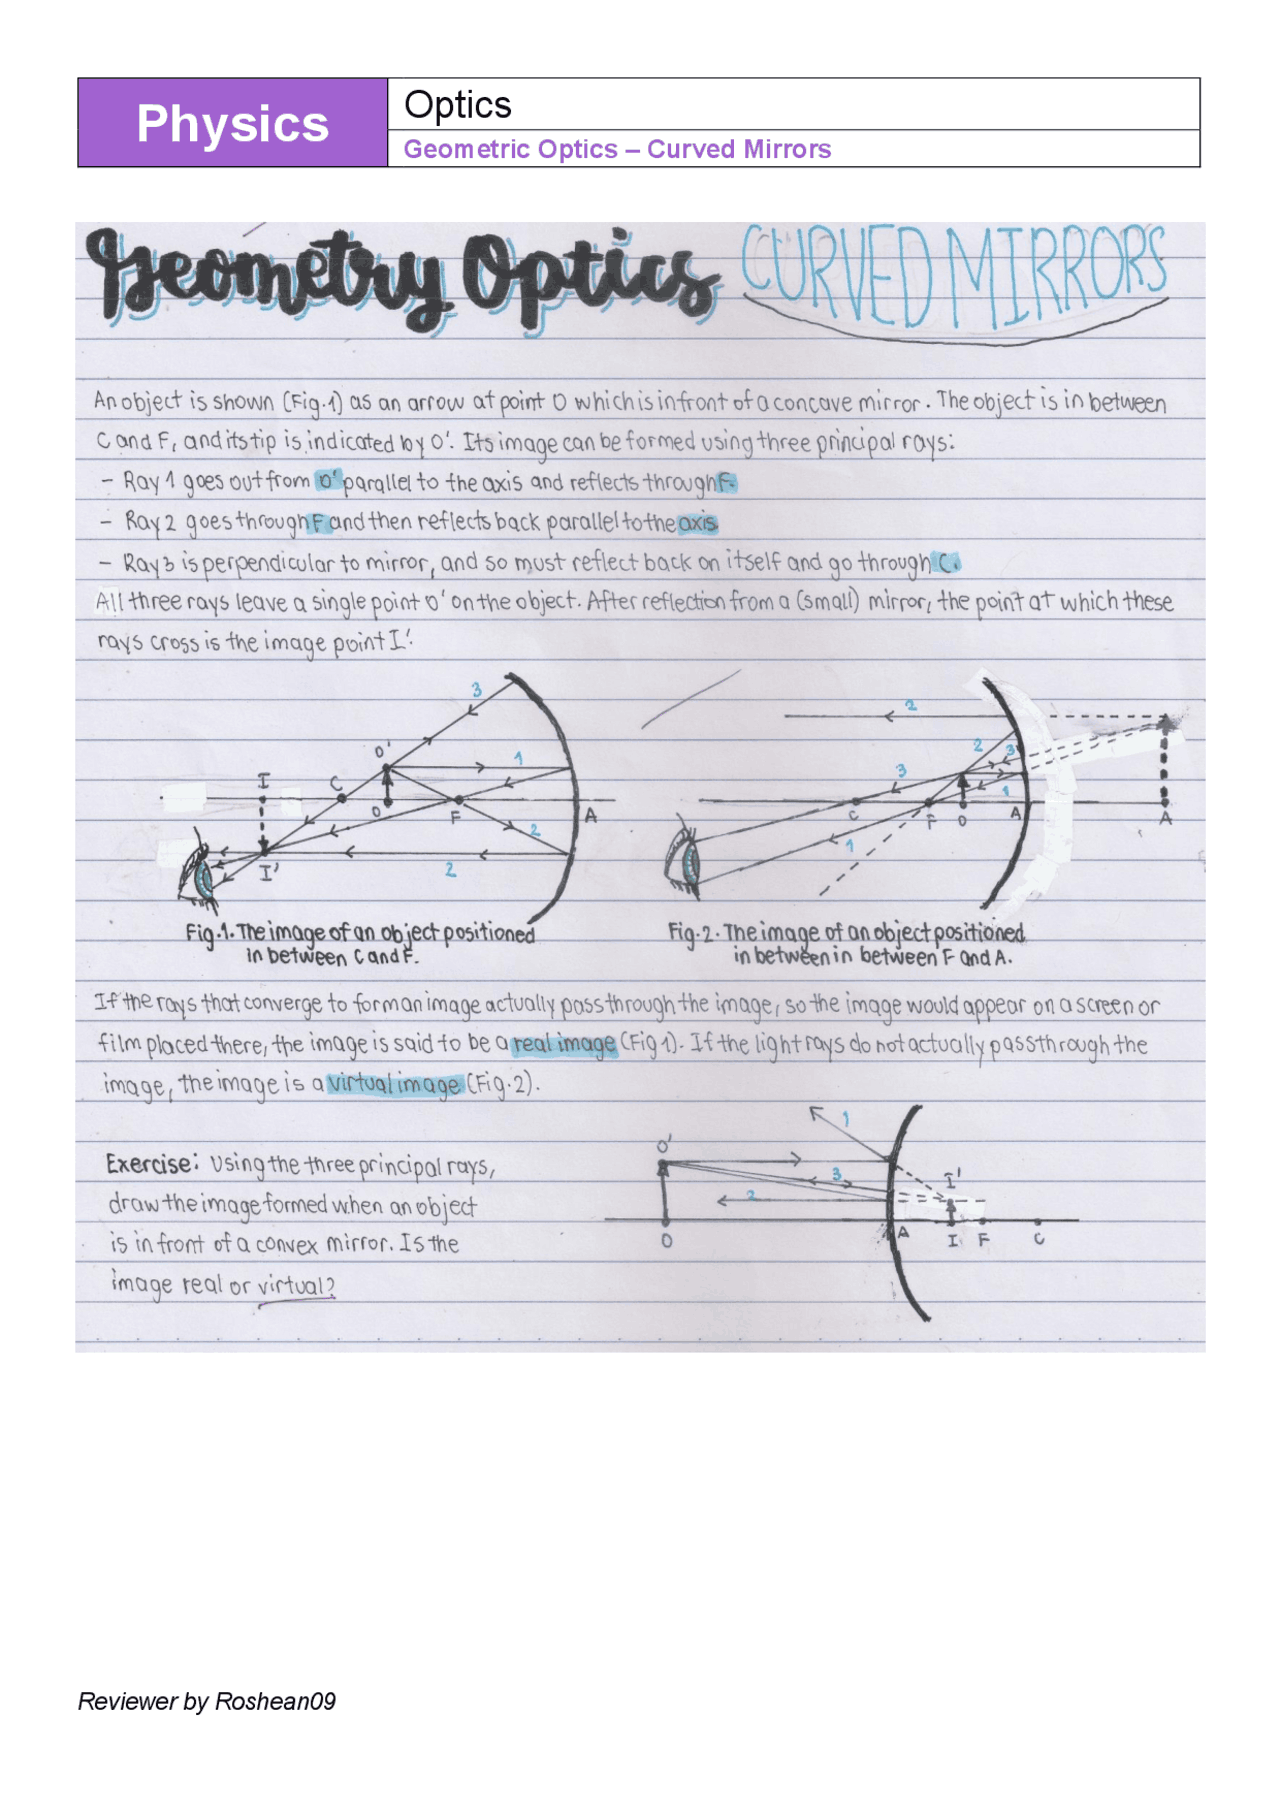 Physics
Optics
Geometric Optics – Curved Mirrors
Geometry Optics CURVED MIRRORS
An object is shown (Fig.1) as an arrow at point O which is in front of a concave mirror. The object is in between
C and F, and its tip is indicated by O'. Its image can be formed using three principal rays:
- Ray 1 goes out from O' parallel to the axis and reflects through F.
- Ray 2 goes through F and then reflects back parallel to the axis
- Ray 3 is perpendicular to mirror, and so must reflect back on itself and go through C.
All three rays leave a single point O' on the object. After reflection from a (small) mirror, the point at which these
rays cross is the image point I'.
3
O'
1
I
C
O
F
A
2
I'
2
2
2
3
3
1
C
F
O
A
A
1
Fig.1. The image of an object positioned
in between C and F.
Fig.2. The image of an object positioned
in between in between F and A.
If the rays that converge to form an image actually pass through the image, so the image would appear on a screen or
film placed there, the image is said to be a real image (Fig 1). If the light rays do not actually pass through the
image, the image is a virtual image (Fig.2).
Exercise: Using the three principal rays,
draw the image formed when an object
is in front of a convex mirror. Is the
image real or virtual?
1
O'
3
I'
2
O
A
I
F
C
Reviewer by Roshean09